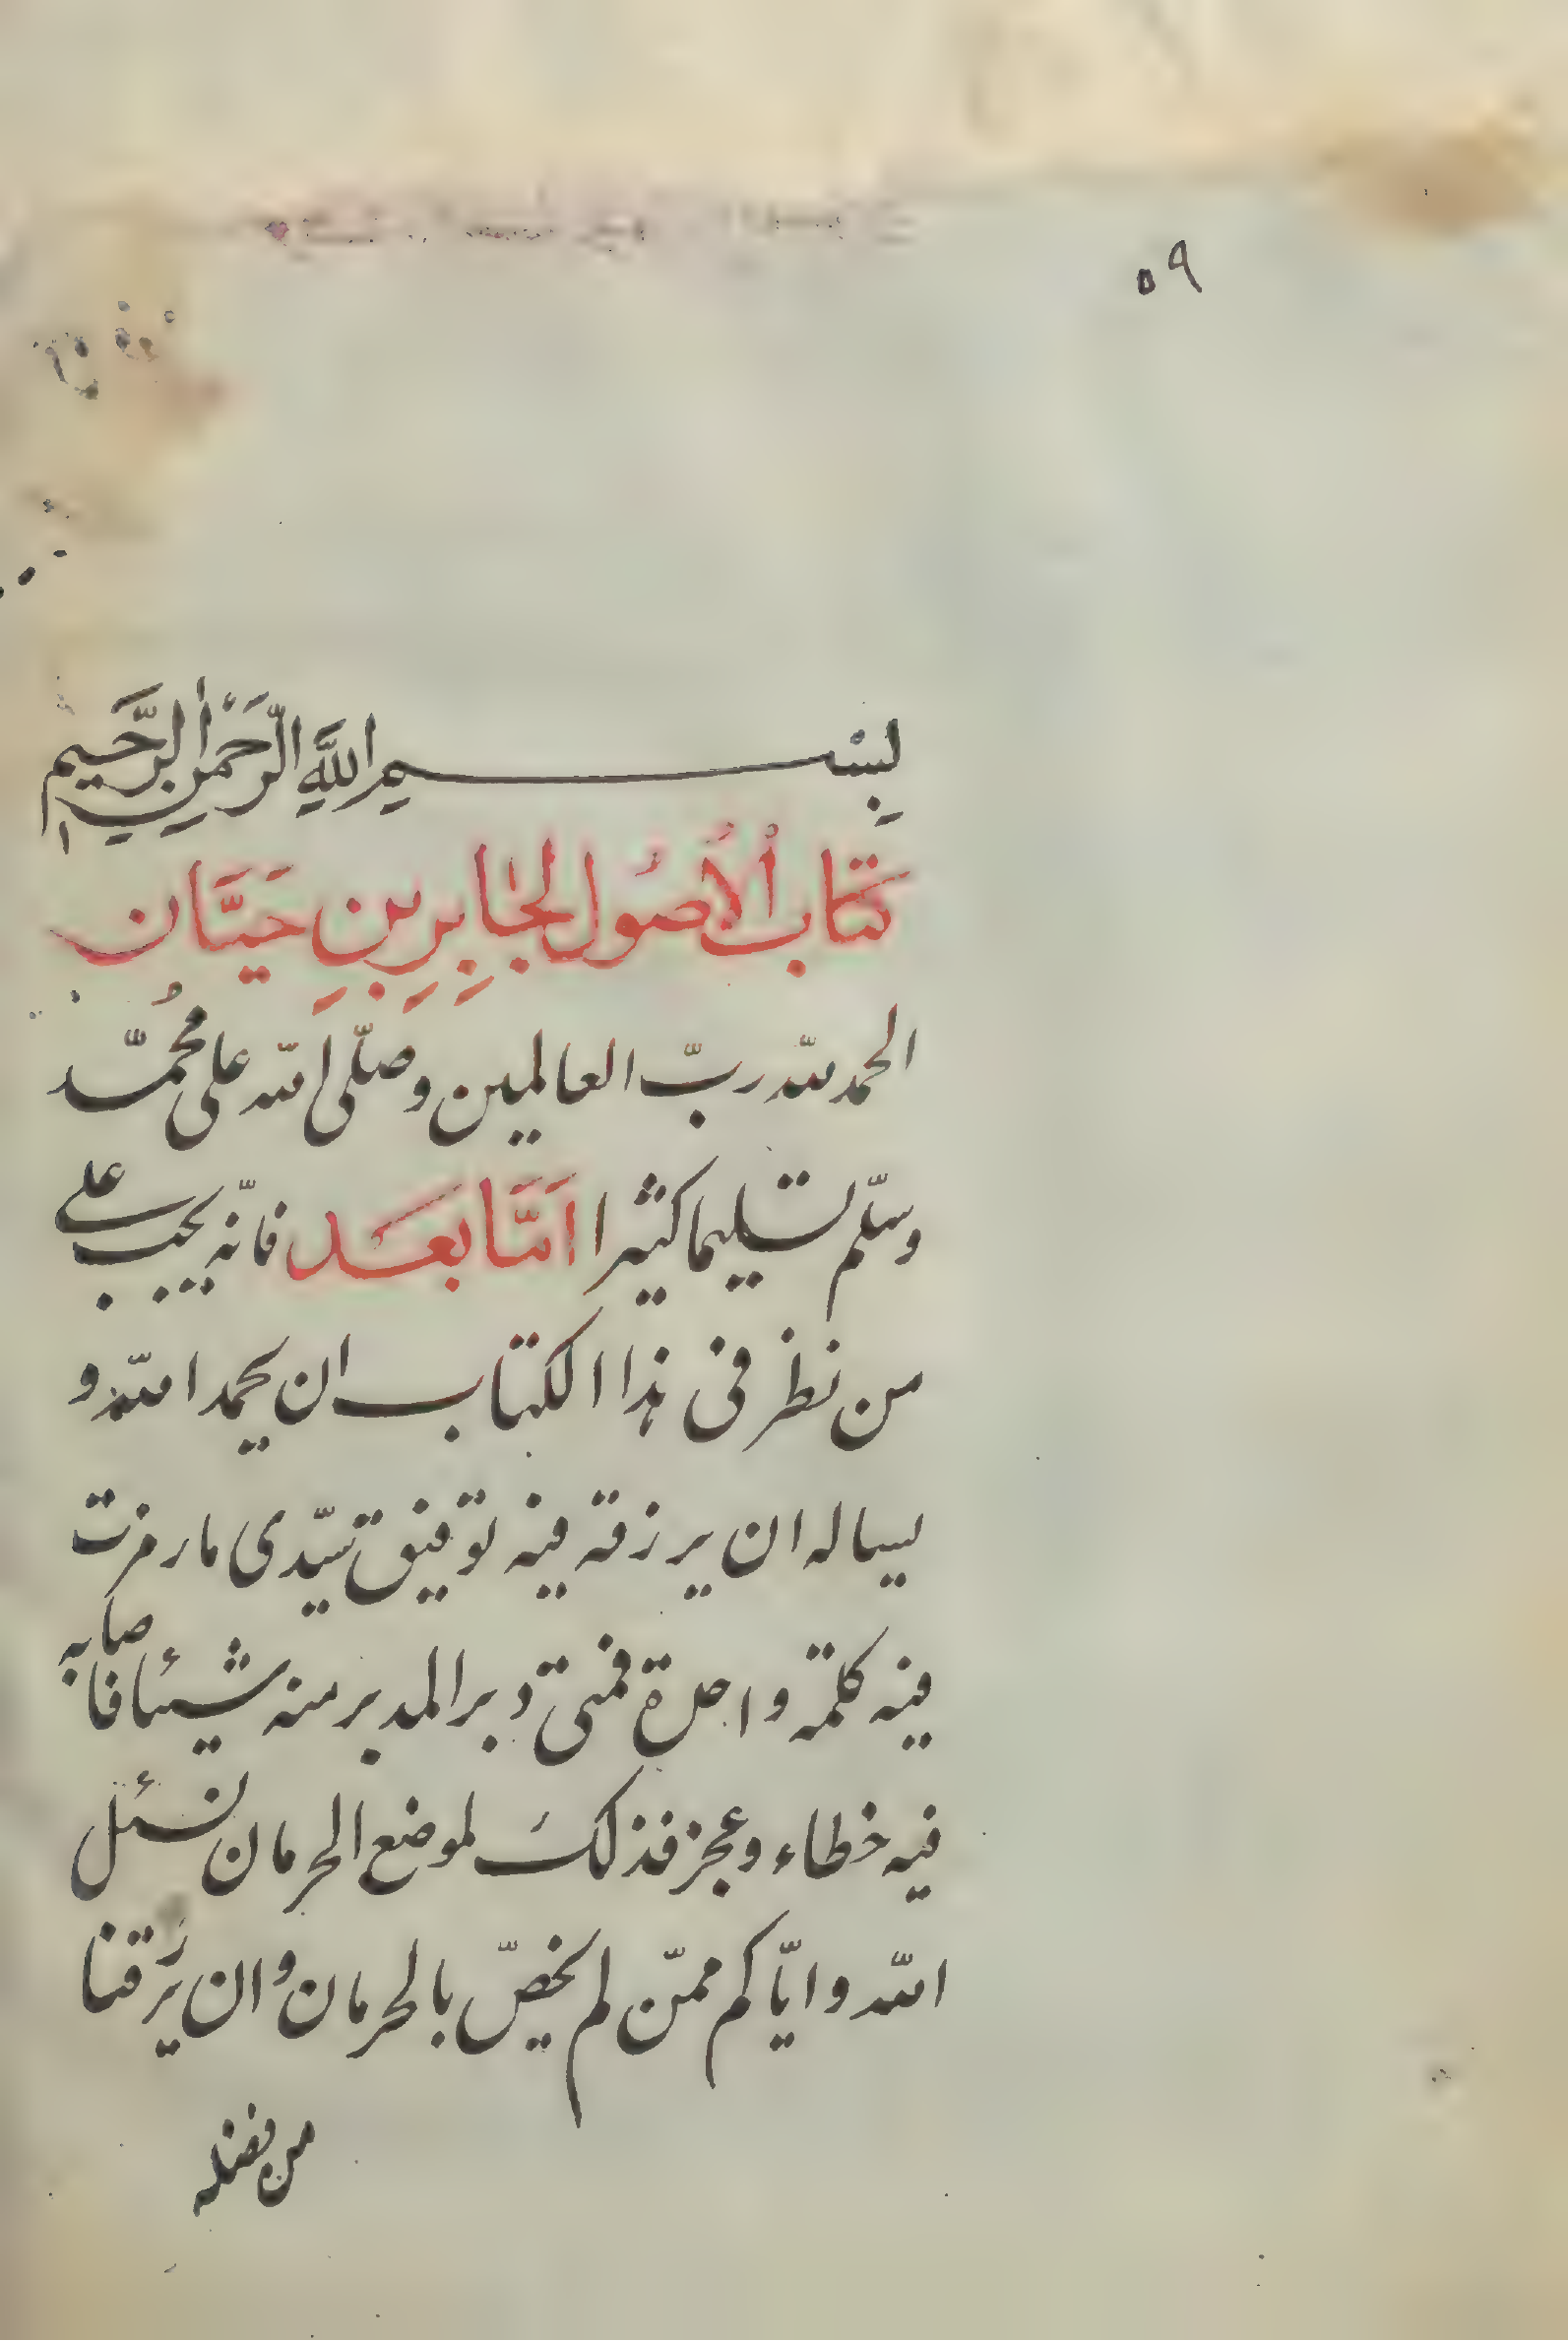 ٥٩
بِسْمِ اللَّهِ الرَّحْمٰنِ الرَّحِيم
كتاب الأُصُول لجَابِرِ بنِ حَيَّان
الحمد لله ربّ العالمين وصلّى الله على محُمّد
وسلّم تسليما كثيرا امَّا بَعَد فانّه يجب على
من نظر فى هذا الكتاب ان يحمد الله و
يساله ان يرزقه فيه توفيق سيّدى ما رمزت
فيه كلمة واحدة فمتى دبر المدبر منه شيئا فاصابه
فيه خطاء وعجز فذلك لموضع الحرمان نسئل
الله واياّكم ممنّ لم يخصّ بالحرمان وان يرزقنا
من فضله